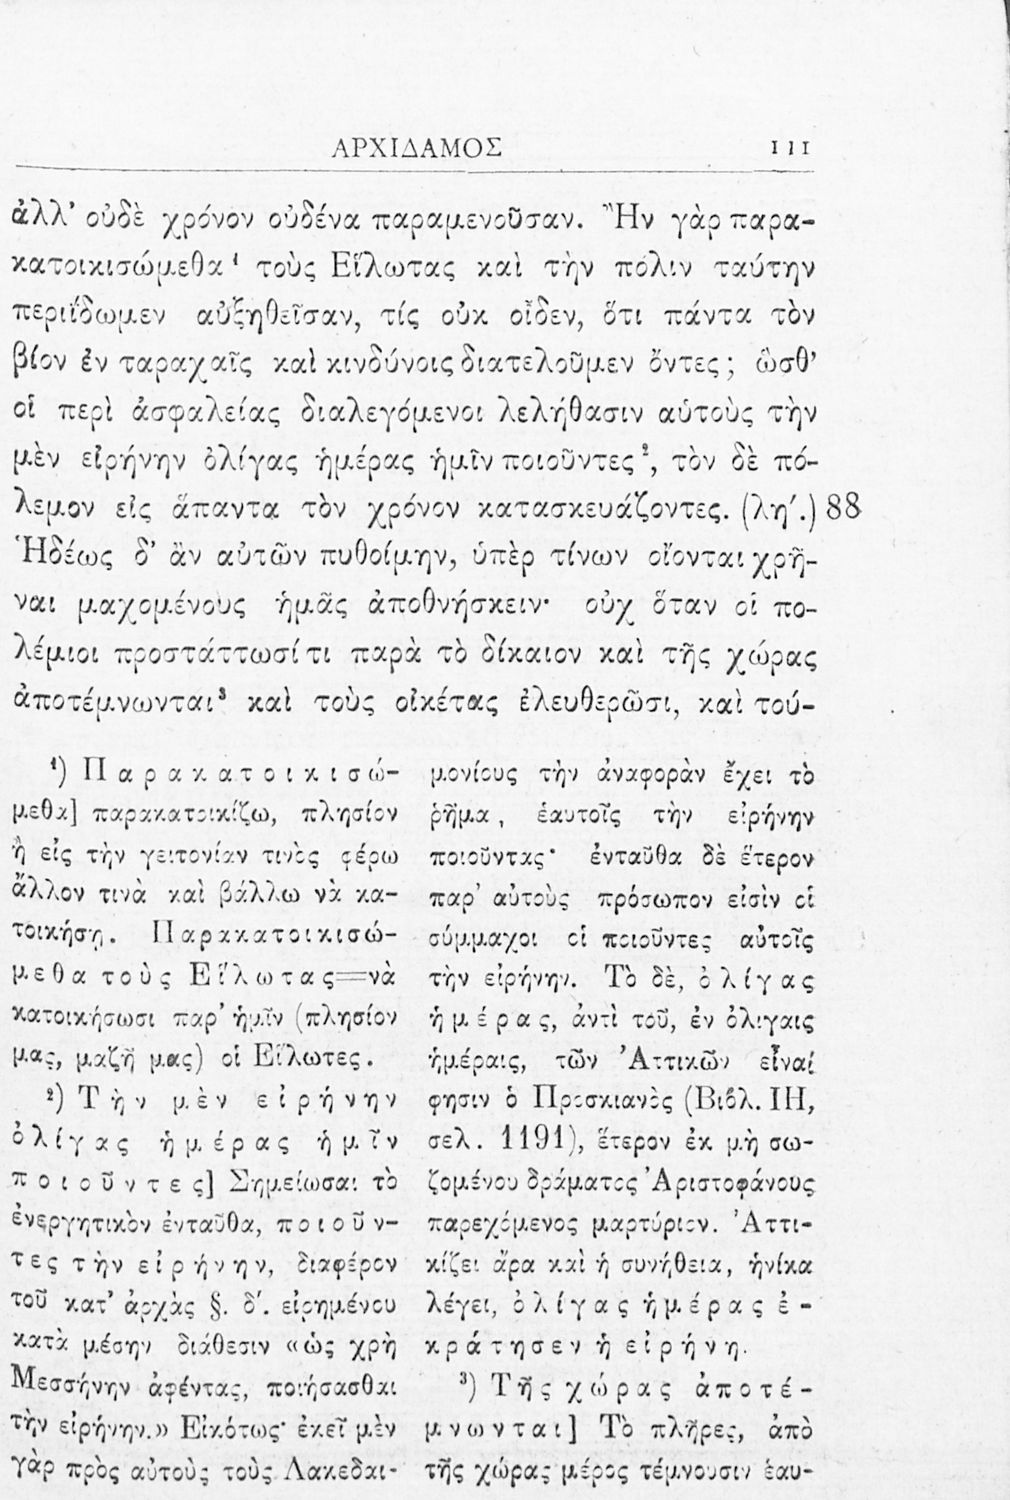 ΑΡΧΙΔΑΜΟΣ 111
ἀλλ' οὐδὲ χρόνον οὐδένα παραμενοῦσαν. Ἢν γὰρ παρα-
κατοικισώμεθα¹ τοὺς Εἵλωτας καὶ τὴν πόλιν ταύτην
περιΐδωμεν αὐξηθεῖσαν, τίς οὐκ οἶδεν, ὅτι πάντα τὸν
βίον ἐν ταραχαῖς καὶ κινδύνοις διατελοῦμεν ὄντες; ὥσθ'
οἱ περὶ ἀσφαλείας διαλεγόμενοι λελήθασιν αὑτοὺς τὴν
μὲν εἰρήνην ὀλίγας ἡμέρας ἡμῖν ποιοῦντες², τὸν δὲ πό-
λεμον εἰς ἅπαντα τὸν χρόνον κατασκευάζοντες. (λη'.) 88
Ἡδέως δ' ἂν αὐτῶν πυθοίμην, ὑπὲρ τίνων οἴονται χρῆ-
ναι μαχομένους ἡμᾶς ἀποθνήσκειν· οὐχ ὅταν οἱ πο-
λέμιοι προστάττωσί τι παρὰ τὸ δίκαιον καὶ τῆς χώρας
ἀποτέμνωνται³ καὶ τοὺς οἰκέτας ἐλευθερῶσι, καὶ τού-
¹) Παρακατοικισώ-
μεθα] παρακατοικίζω, πλησίον
ἢ εἰς τὴν γειτονίαν τινὸς φέρω
ἄλλον τινὰ καὶ βάλλω νὰ κα-
τοικήσῃ. Παρακατοικισώ-
μεθα τοὺς Εἵλωτας=νὰ
κατοικήσωσι παρ' ἡμῖν (πλησίον
μας, μαζῆ μας) οἱ Εἵλωτες.
²) Τὴν μὲν εἰρήνην
ὀλίγας ἡμέρας ἡμῖν
ποιοῦντες] Σημείωσαι τὸ
ἐνεργητικὸν ἐνταῦθα, ποιοῦν-
τες τὴν εἰρήνην, διαφέρον
τοῦ κατ' ἀρχὰς §. δ'. εἰρημένου
κατὰ μέσην διάθεσιν «ὡς χρὴ
Μεσσήνην ἀφέντας, ποιήσασθαι
τὴν εἰρήνην.» Εἰκότως· ἐκεῖ μὲν
γὰρ πρὸς αὐτοὺς τοὺς Λακεδαι-
μονίους τὴν ἀναφορὰν ἔχει τὸ
ῥῆμα, ἑαυτοῖς τὴν εἰρήνην
ποιοῦντας· ἐνταῦθα δὲ ἕτερον
παρ' αὐτοὺς πρόσωπον εἰσὶν οἱ
σύμμαχοι οἱ ποιοῦντες αὐτοῖς
τὴν εἰρήνην. Τὸ δὲ, ὀλίγας
ἡμέρας, ἀντὶ τοῦ, ἐν ὀλιγαις
ἡμέραις, τῶν Ἀττικῶν εἶναί
φησιν ὁ Πρισκιανὸς (Βιβλ. ΙΗ,
σελ. 1191), ἕτερον ἐκ μὴ σω-
ζομένου δράματος Ἀριστοφάνους
παρεχόμενος μαρτύριον. Ἀττι-
κίζει ἄρα καὶ ἡ συνήθεια, ἡνίκα
λέγει, ὀλίγας ἡμέρας ἐ-
κράτησεν ἡ εἰρήνη.
³) Τῆς χώρας ἀποτέ-
μνωνται] Τὸ πλῆρες, ἀπὸ
τῆς χώρας μέρος τέμνουσιν ἑαυ-